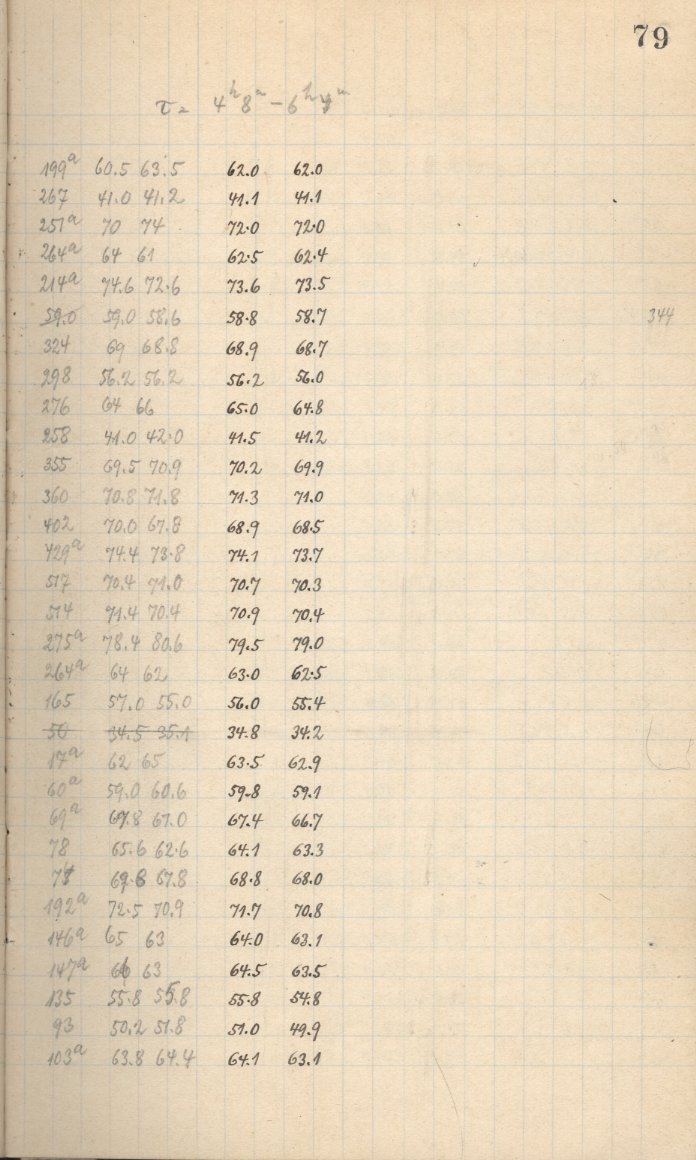 79
τ = 4ʰ8ᵐ – 6ʰ4ᵐ
199ᵃ 60.5 63.5 62.0 62.0
267 41.0 41.2 41.1 41.1
251ᵃ 70 74 72.0 72.0
264ᵃ 64 61 62.5 62.4
214ᵃ 74.6 72.6 73.6 73.5
59.0 59.0 58.6 58.8 58.7 344
324 69 68.8 68.9 68.7
298 56.2 56.2 56.2 56.0
276 64 66 65.0 64.8
258 41.0 42.0 41.5 41.2
355 69.5 70.9 70.2 69.9
360 70.8 71.8 71.3 71.0
402 70.0 67.8 68.9 68.5
429ᵃ 74.4 73.8 74.1 73.7
517 70.4 71.0 70.7 70.3
514 71.4 70.4 70.9 70.4
275ᵃ 78.4 80.6 79.5 79.0
264ᵃ 64 62 63.0 62.5
165 57.0 55.0 56.0 55.4
50 34.5 35.1 34.8 34.2
17ᵃ 62 65 63.5 62.9
60ᵃ 59.0 60.6 59.8 59.1
69ᵃ 67.8 67.0 67.4 66.7
78 65.6 62.6 64.1 63.3
69.8 67.8 68.8 68.0
192ᵃ 72.5 70.9 71.7 70.8
146ᵃ 65 63 64.0 63.1
147ᵃ 66 63 64.5 63.5
135 55.8 55.8 55.8 54.8
93 50.2 51.8 51.0 49.9
103ᵃ 63.8 64.4 64.1 63.1